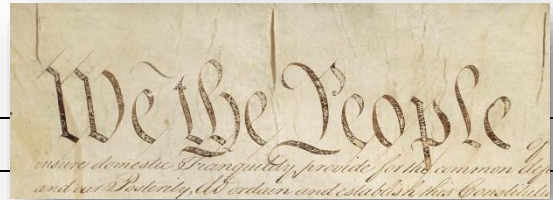 We the People of
insure domestic Tranquility, provide for the common def
and our Posterity, do ordain and establish this Constitutio